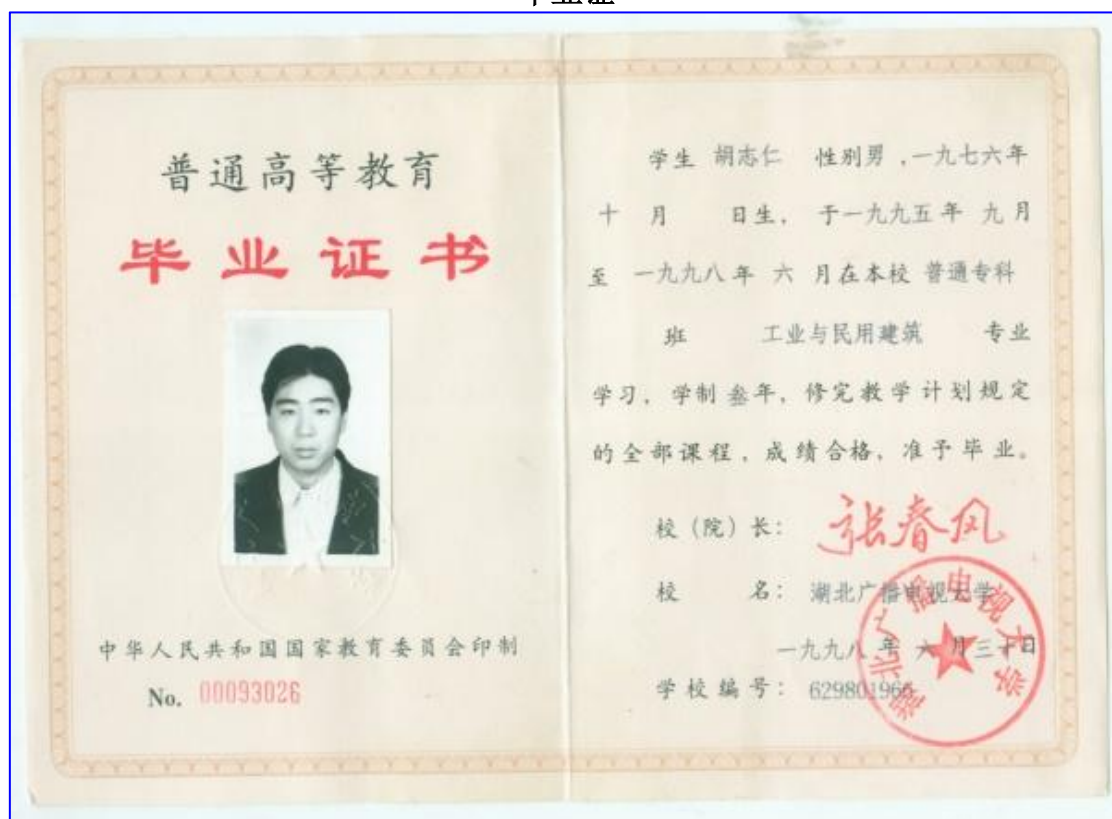 毕业证
普通高等教育
毕业证书
中华人民共和国国家教育委员会印制
No. 00093026
学生 胡志仁 性别男，一九七六年
十 月 日生，于一九九五年 九月
至 一九九八年 六 月在本校 普通专科
班 工业与民用建筑 专业
学习，学制叁年，修完教学计划规定
的全部课程，成绩合格，准予毕业。
校（院）长： 张春风
校 名： 湖北广播电视大学
一九九八 年 六月三十日
学校编号： 629801966
湖北广播电视大学